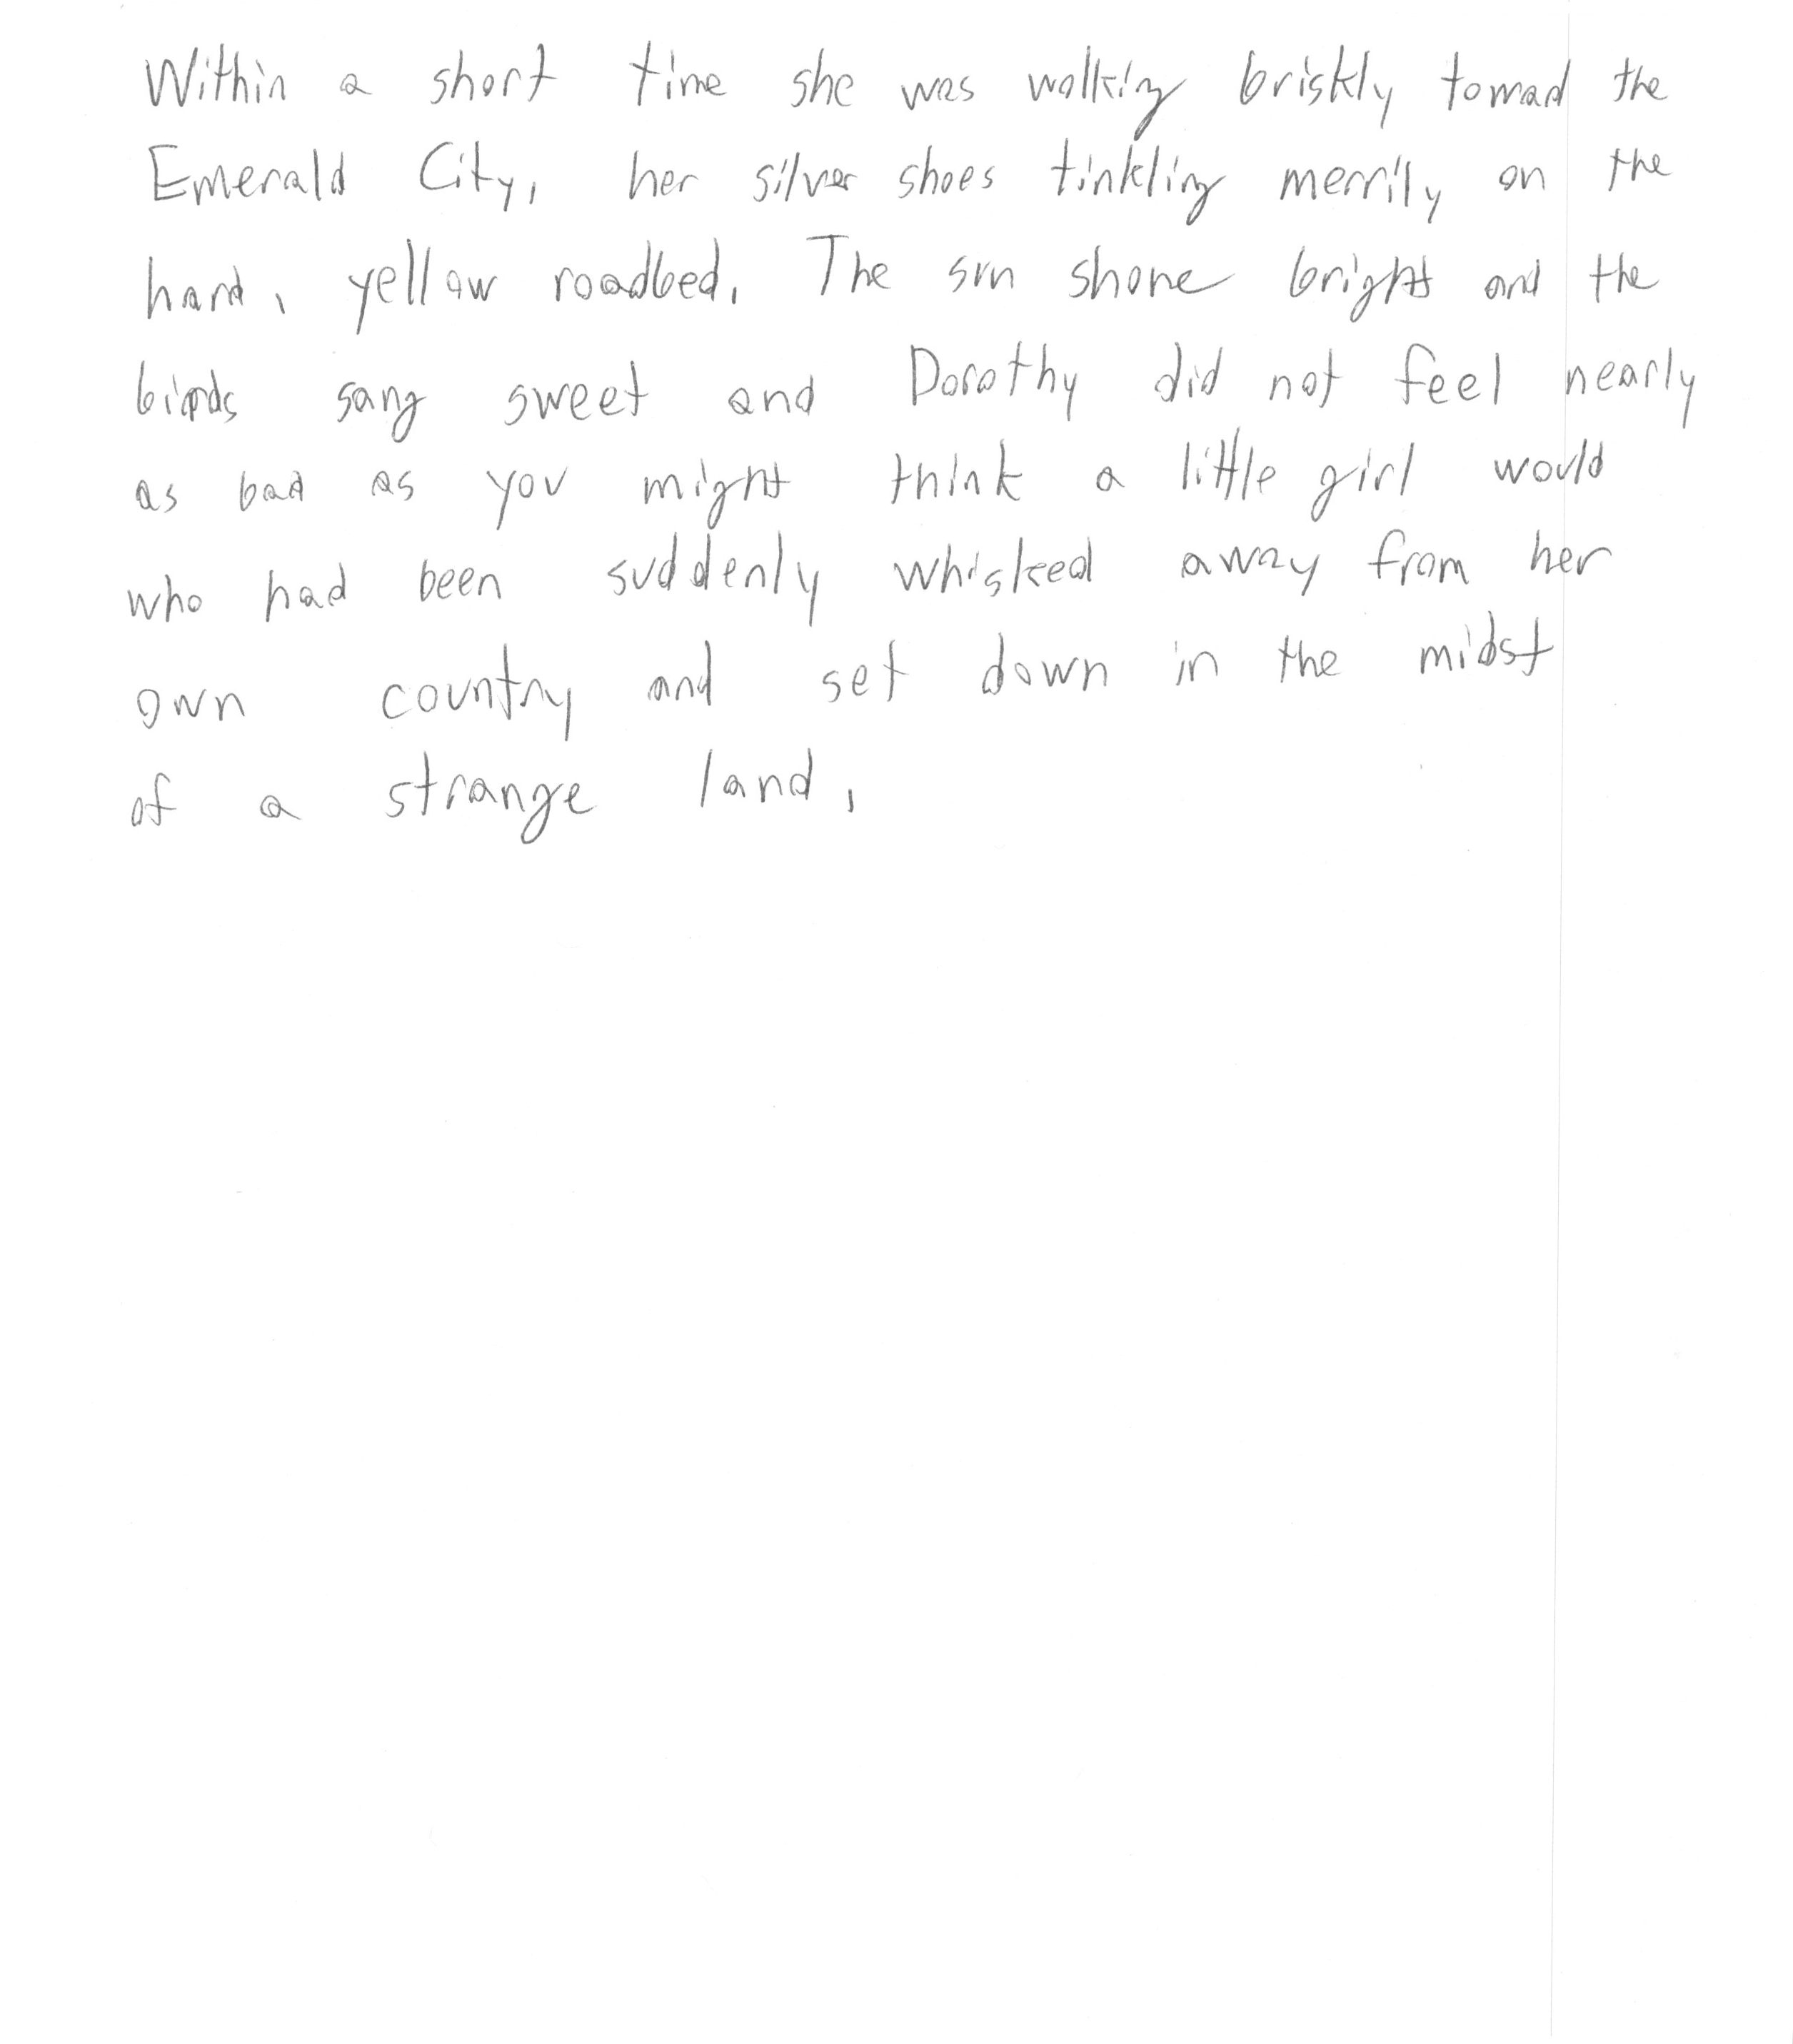 Within a short time she was walking briskly toward the
Emerald City, her silver shoes tinkling merrily on the
hard, yellow roadbed. The sun shone bright and the
birds sang sweet and Dorothy did not feel nearly
as bad as you might think a little girl would
who had been suddenly whisked away from her
own country and set down in the midst
of a strange land.